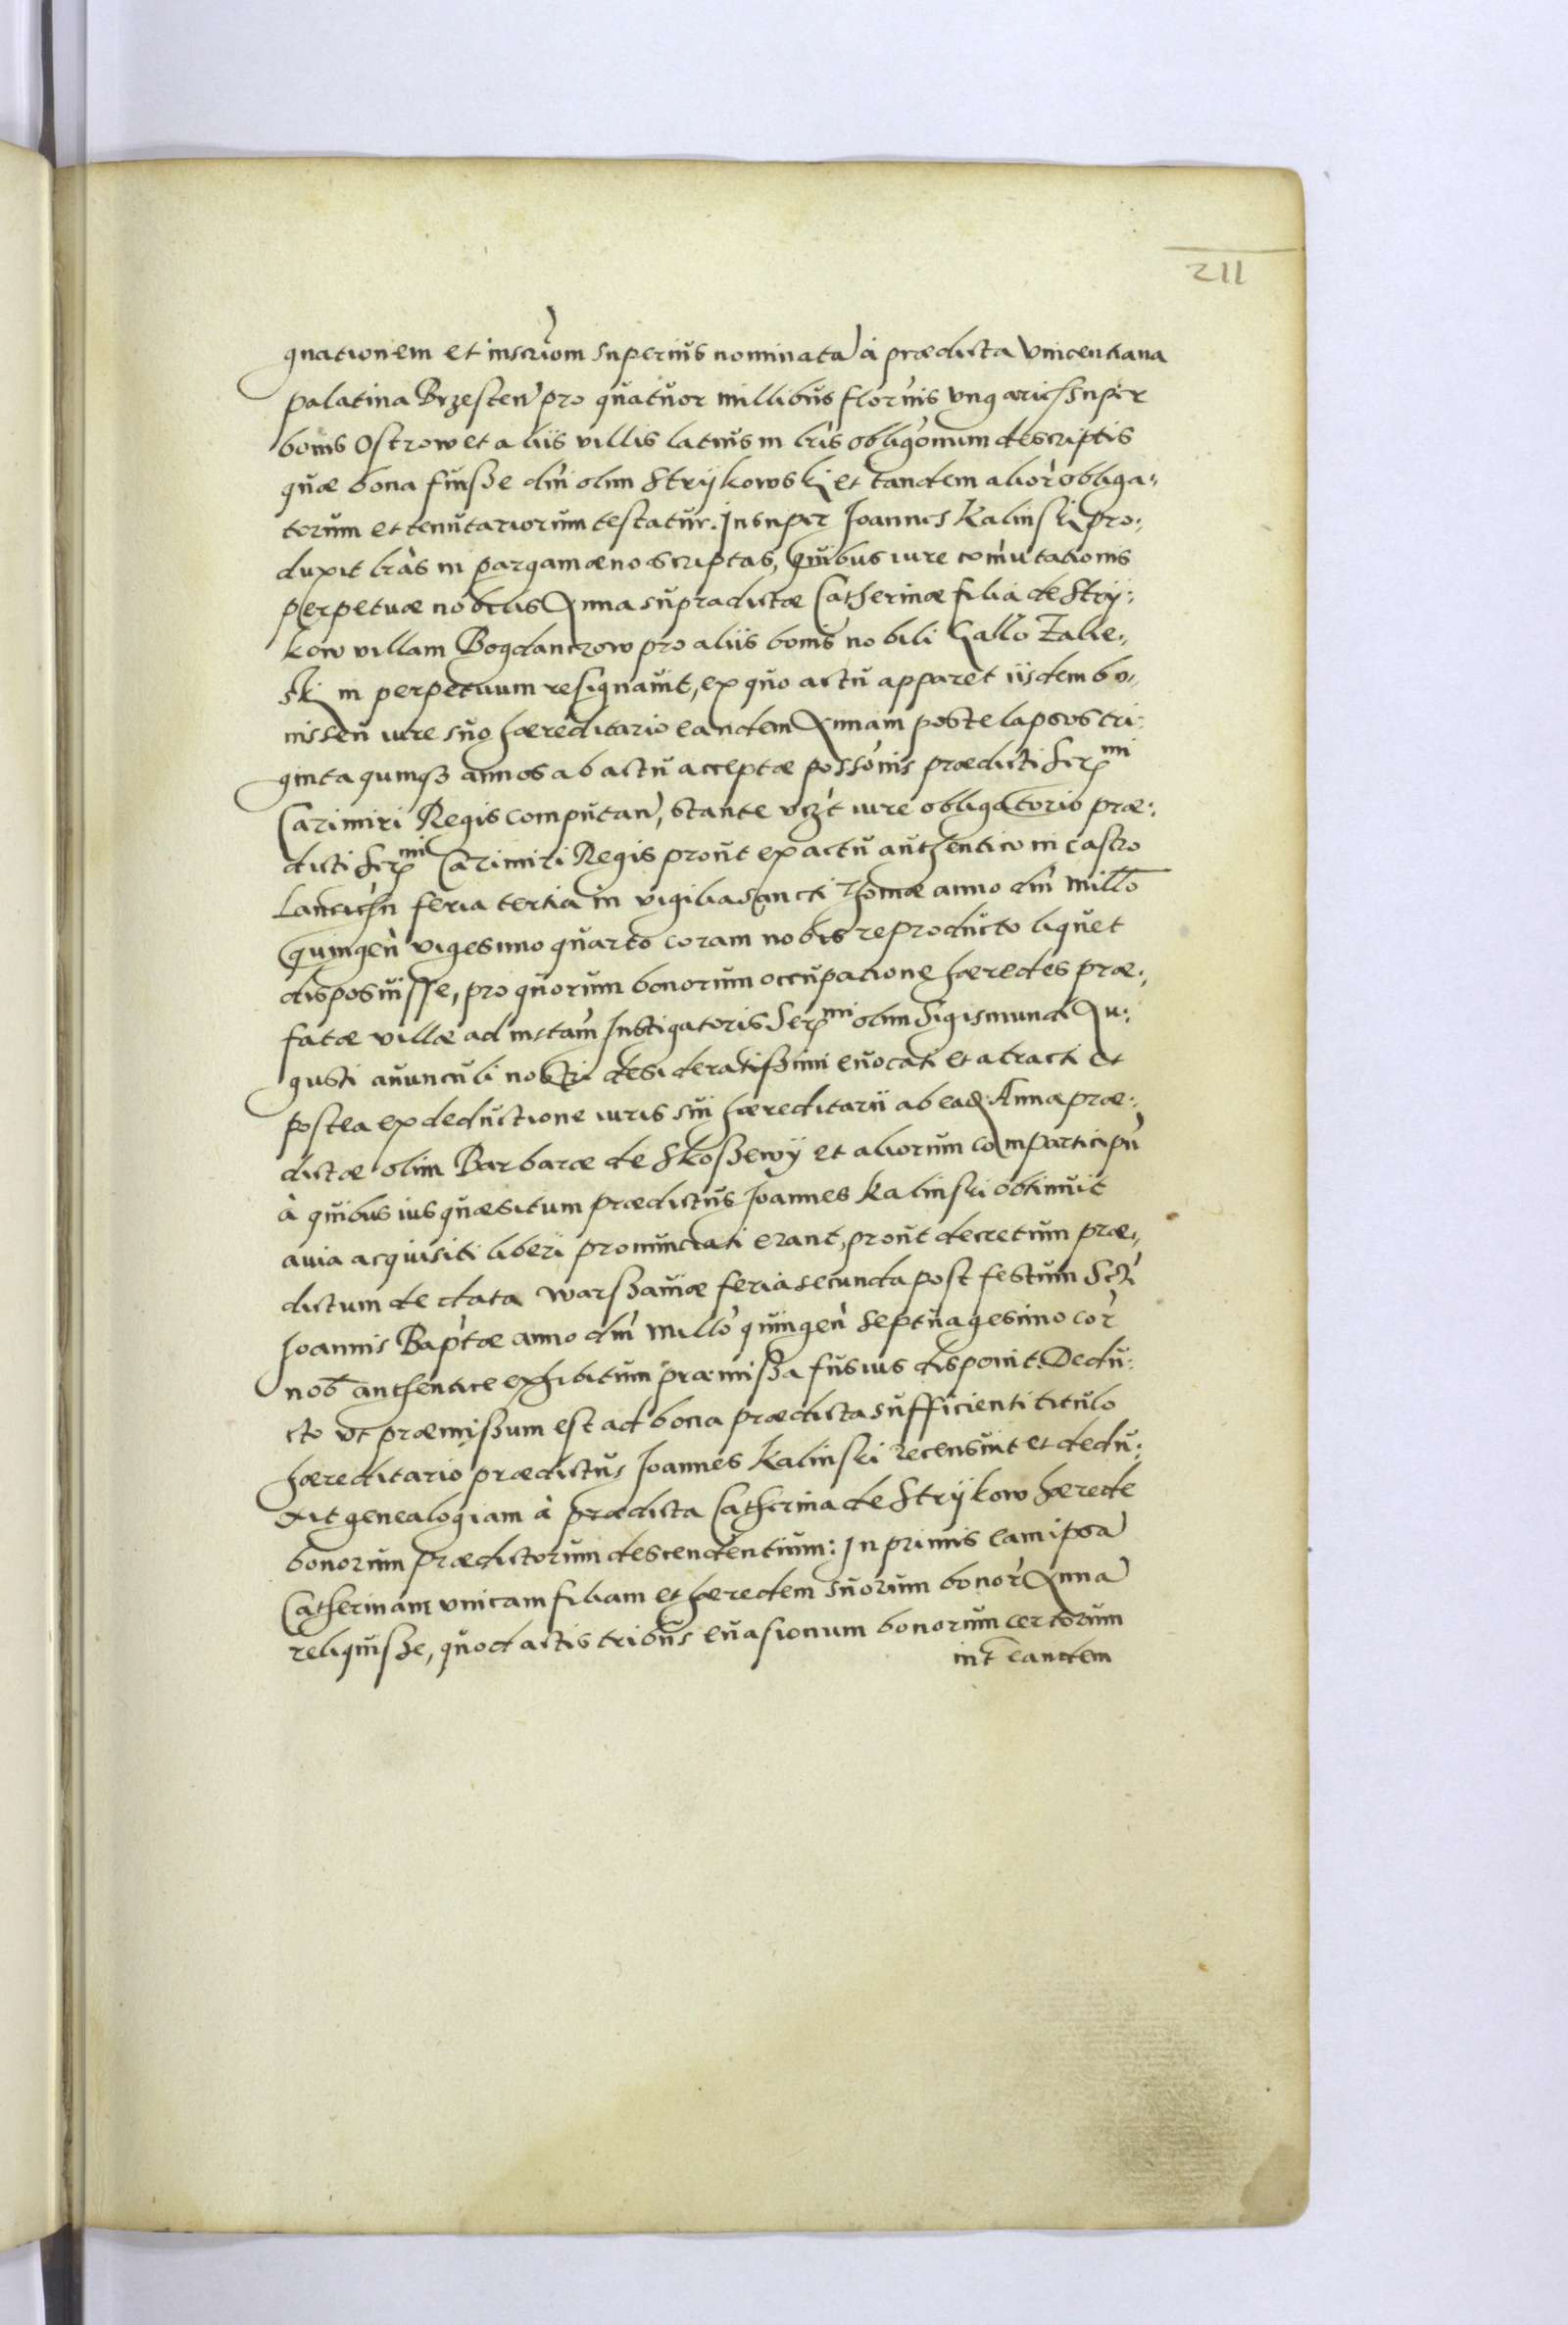 211
gnationem et inscrīom superius nominatā à prædicta Vnicentiana
palatina Brzesteń pro quatuor millibus florinis vngarić super
bonis Ostrow et aliis villis latius in lr̃is obligõnum descriptis
quæ bona fuisse dńi olim Strÿkowski et tandem alioŕ obliga,,
torum et tenutariorum testatur. Insuper Joannes Kalinski pro:
duxit lr̃as in pargamæno scriptas, quibus iure com̃utationis
perpetuæ nobilis Anna supradictæ Catherinæ filia de Strÿ:
kow villam Bogdanczow pro aliis bonis nobili Gallo Zalie,,
ski in perpetuum resignauit, ex quo actu apparet iisdem bo,,
nis seu iure suo hæreditario eandem Annam post elapsos tri:
ginta quinqȝ annos ab actu acceptæ possõnis prædicti Serᵐⁱ
Cazimiri Regis computań, stante vcȝt iure obligatorio præ:
dicti Serᵐⁱ Cazimiri Regis prout ex actu authentico in castro
Lancicień feria tertia in vigilia sancti Thomæ anno dńi millõ
quingeń vigesimo quarto coram nobis reproducto liquet
disposuisse, pro quorum bonorum occupatione hæredes præ:
fatæ villæ ad instañ Instigatoris Serᵐⁱ olim Sigismundi Au:
gusti auunculi nostri desideratissimi euocati et atracti et
postea ex deductione iuris sui hæreditarii ab eadem Anna præ:
dictæ olim Barbaræ de Skoszewÿ et aliorum comparticipũ
à quibus ius quæsitum prædictus Joannes Kalinski obtinuit
auia acquisiti liberi pronunciati erant, prout decretum præ,,
dictum de data Warszauiæ feria secunda post festum Sc̃ti
Joannis Bap̃tæ anno dńi millõ quingeń septuagesimo cor̃
nob̃ authentice exhibitum præmissa fusius disponit. Dedu:
cto vt præmissum est ad bona prædicta sufficienti titulo
hæreditario prædictus Joannes Kalinski recensuit et dedu:
xit genealogiam à prædicta Catherina de Strÿkow hærede
bonorum prædictorum descendentium: In primis eam ipsã
Catherinam vnicam filiam et hæredem suorum bonoŕ Annã
reliquisse, quod actis tribus euasionum bonorum certorum
int̃ eandem